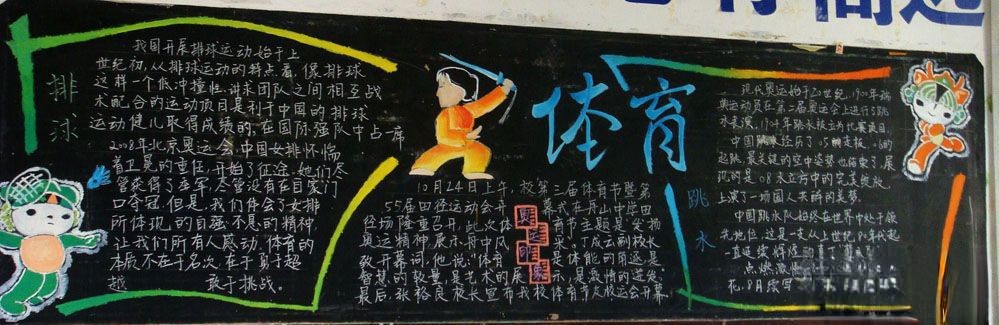 排球
我国开展排球运动始于上
世纪初,从排球运动的特点看,像排球
这样一个低冲撞性,讲求团队之间相互战
术配合的运动项目是利于中国的排球
运动健儿取得成绩的,在国际强队中占一席
2008年北京奥运会,中国女排怀惴
着卫冕的重任,开始了征途,她们尽
管获得了季军,尽管没有在自家门
口夺冠,但是,我们体会了女排
所体现的自强不息的精神,
让我们所有人感动,体育的
本质不在于名次,在于勇于超
越 敢于挑战。
体育
10月24日上午,校第三届体育节暨第
55届田径运动会开幕式在舟山中学田
径场隆重召开,此次体育节主题是发扬
奥运精神,展示舟中风采,丁成云副校长
致开幕词,他说:"体育是体能的角逐是
智慧的较量,是艺术的展示,是激情的迸发。"
最后,张裕良校长宣布我校体育节及校运会开幕!
奥运印象
跳水
现代奥运始于20世纪,1900年瑞
奥运动员在第二届奥运会上进行了跳
水表演,1904年跳水被立为比赛项目,
的起跳,最关键的空中姿势也结束了,展
现的是08水立方中的完美绽放,
上演了一场国人关辉的美梦。
中国跳水队始终在世界中处于领
先地位,这是一支从上世纪80年代起
一直延续辉煌
点燃激
花,8月续写